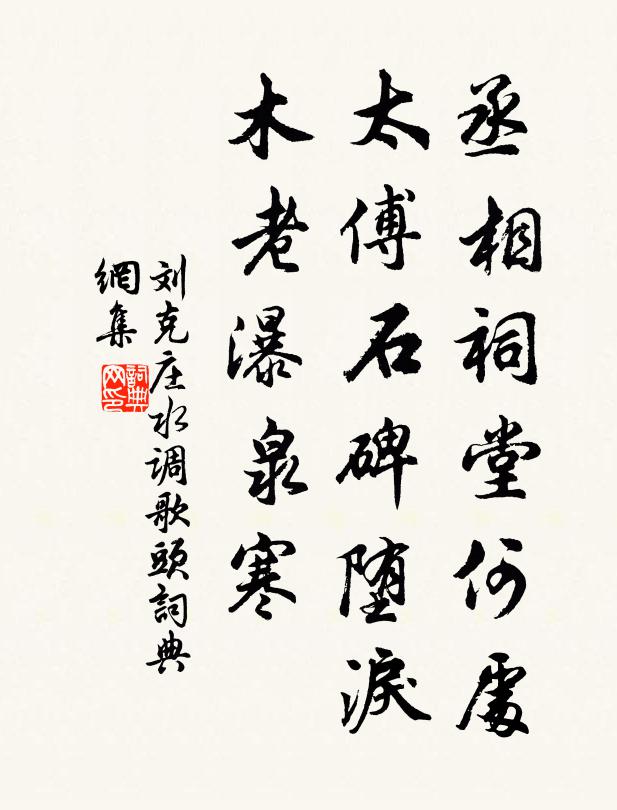 丞相祠堂何處
太傅石碑堕淚
木老瀑泉寒
刘克庄水调歌頭詞典
網集
詞典网印